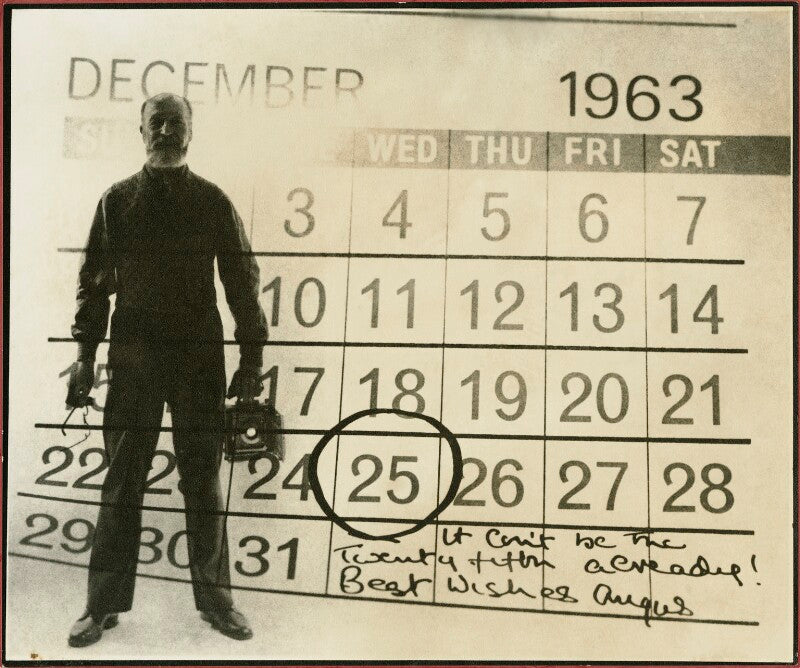 DECEMBER 1963
SU WED THU FRI SAT
3 4 5 6 7
10 11 12 13 14
15 17 18 19 20 21
22 2 24 25 26 27 28
29 30 31
It Can't be the
Twenty fifth already!
Best Wishes Angus